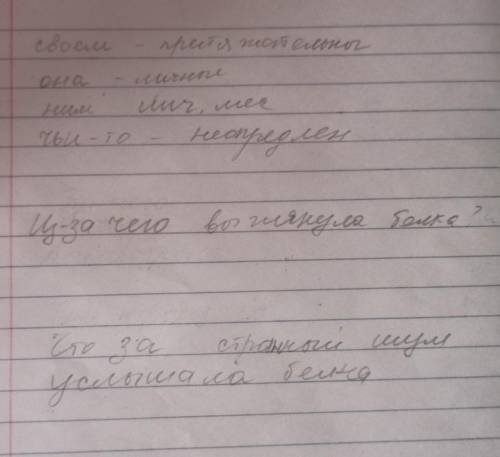 своем - притяжательны
она - личные
ним лич. мес
чьи-то - неопределен
Из-за чего выглянула белка?
Что за странный шум
услышала белка